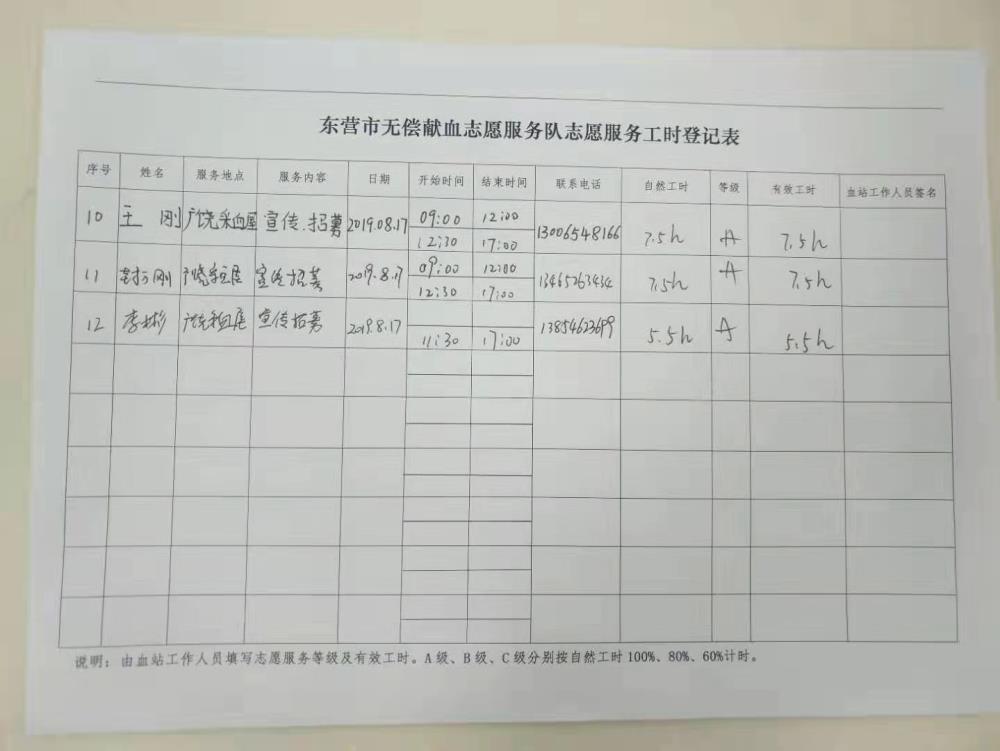 东营市无偿献血志愿服务队志愿服务工时登记表
序号 姓名 服务地点 服务内容 日期 开始时间 结束时间 联系电话 自然工时 等级 有效工时 血站工作人员签名
10 王刚 广饶采血屋 宣传.招募 2019.08.17 09:00 12:00 13006548166 7.5h A 7.5h
12:30 17:00
11 刚 广饶采血屋 宣传招募 2019.8.17 09:00 12:00 13465263434 7.5h A 7.5h
12:30 17:00
12 李彬 广饶采血屋 宣传招募 2019.8.17 13854623699 5.5h A 5.5h
11:30 17:00
说明：由血站工作人员填写志愿服务等级及有效工时。A级、B级、C级分别按自然工时100%、80%、60%计时。